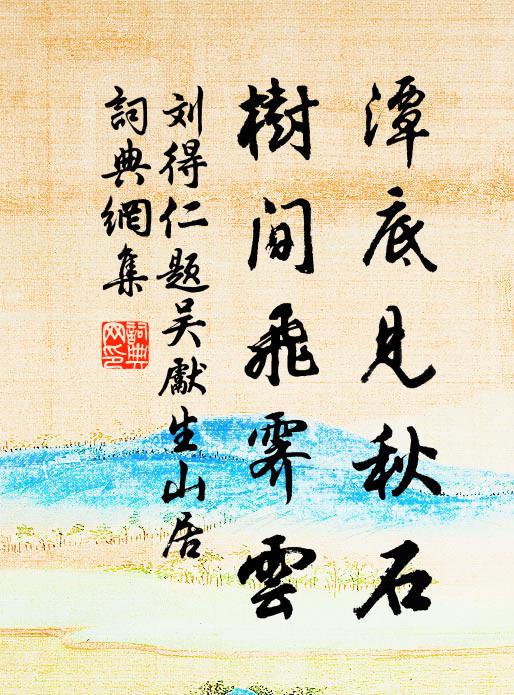 潭底見秋石
樹間飛霽雲
刘得仁题吴獻生山居
詞典網集
詞典网印